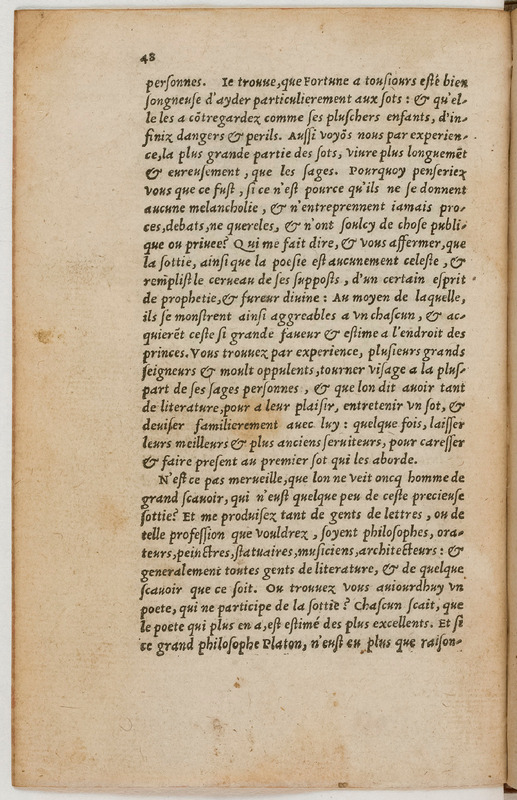 48
personnes. Ie trouue, que Fortune a tousiours esté bien
songneuse d'ayder particulierement aux sots : & qu'el-
le les a cōtregardez comme ses pluschers enfants, d'in-
finiz dangers & perils. Aussi voyōs nous par experien-
ce, la plus grande partie des sots, viure plus longuemēt
& eureusement, que les sages. Pourquoy penseriez
vous que ce fust, si ce n'est pource qu'ils ne se donnent
aucune melancholie, & n'entreprennent iamais pro-
ces, debats, ne quereles, & n'ont soulcy de chose publi-
que ou priuee? Qui me fait dire, & vous affermer, que
la sottie, ainsi que la poesie est aucunement celeste, &
remplist le cerueau de ses supposts, d'un certain esprit
de prophetie, & fureur diuine : Au moyen de laquelle,
ils se monstrent ainsi aggreables a vn chascun, & ac-
quierēt ceste si grande faueur & estime a l'endroit des
princes. Vous trouuez par experience, plusieurs grands
seigneurs & moult oppulents, tourner visage a la plus-
part de ses sages personnes, & que lon dit auoir tant
de literature, pour a leur plaisir, entretenir vn sot, &
deuiser familierement auec luy : quelque fois, laisser
leurs meilleurs & plus anciens seruiteurs, pour caresser
& faire present au premier sot qui les aborde.
N'est ce pas merueille, que lon ne veit oncq homme de
grand scauoir, qui n'eust quelque peu de ceste precieuse
sottie? Et me produisez tant de gents de lettres, ou de
telle profession que vouldrez, soyent philosophes, ora-
teurs, peinctres, statuaires, musiciens, architecteurs : &
generalement toutes gents de literature, & de quelque
scauoir que ce soit. Ou trouuez vous auiourdhuy vn
poete, qui ne participe de la sottie? Chascun scait, que
le poete qui plus en a, est estimé des plus excellents. Et si
ce grand philosophe Platon, n'eust eu plus que raison-